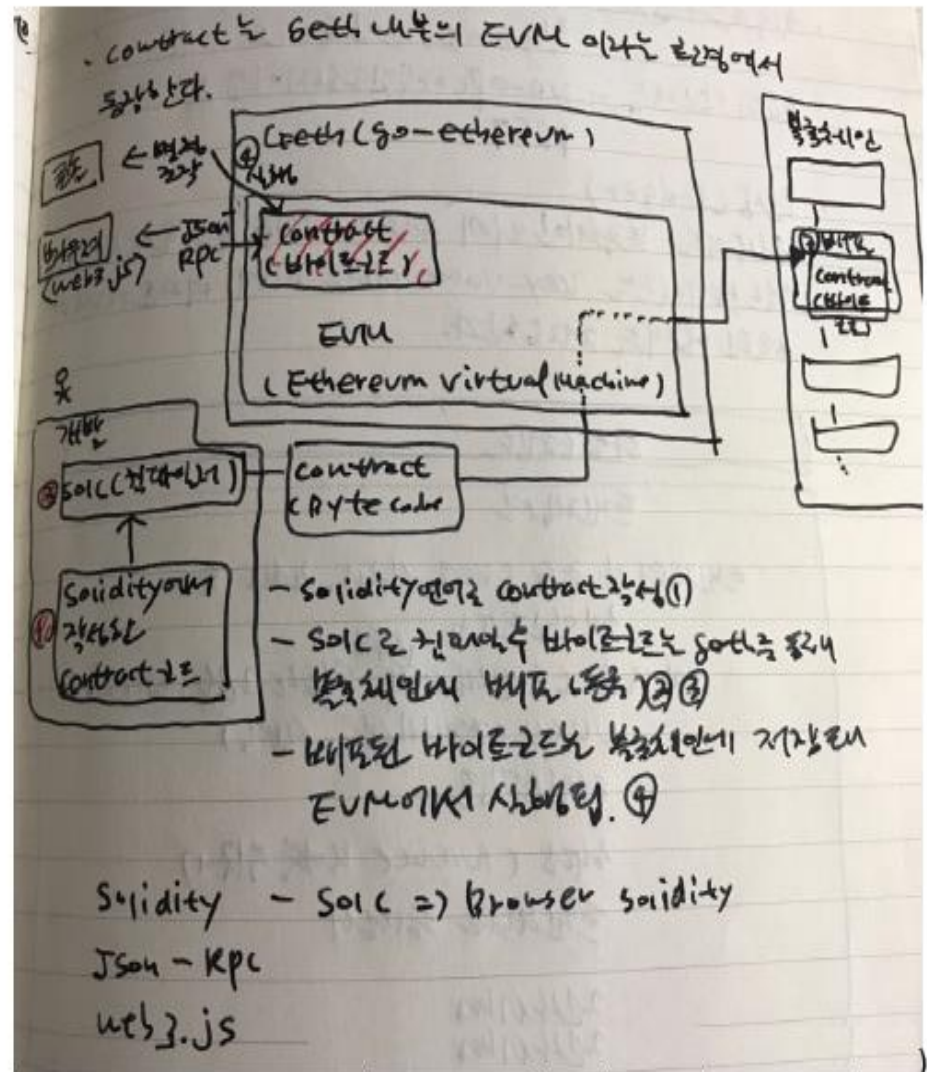 . contract는 Geth 내부의 EVM 이라는 환경에서
동작한다.
콘솔
← 명령
조작
브라우저
(web3.js)
← JSon
Rpc
④
실행
Geth (go-ethereum)
contract
(바이트코드)
EVM
(Ethereum virtual Machine)
블록체인
③ 배포
contract
(바이트
코드)
개발
② solc (컴파일러)
contract
(Byte code
① solidity에서
작성한
contract 코드
- solidity언어로 contract 작성 ①
- solc로 컴파일 수 바이트코드는 geth를 통해
블록체인에 배포 (등록) ② ③
- 배포된 바이트코드는 블록체인에 저장돼
EVM에서 실행됨. ④
Solidity - solc => Browser solidity
Json - Rpc
web3.js